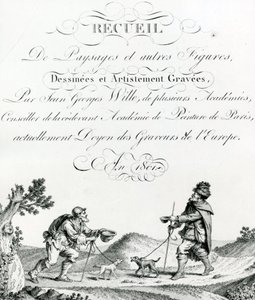 RECUEIL
De Paysages et autres Figures,
Dessinées et Artistement Gravées,
Par Jean Georges Wille, de plusieurs Académies,
Conseiller de la cidevant Académie de Peinture de Paris,
actuellement Doyen des Graveurs de l'Europe.
An 1801